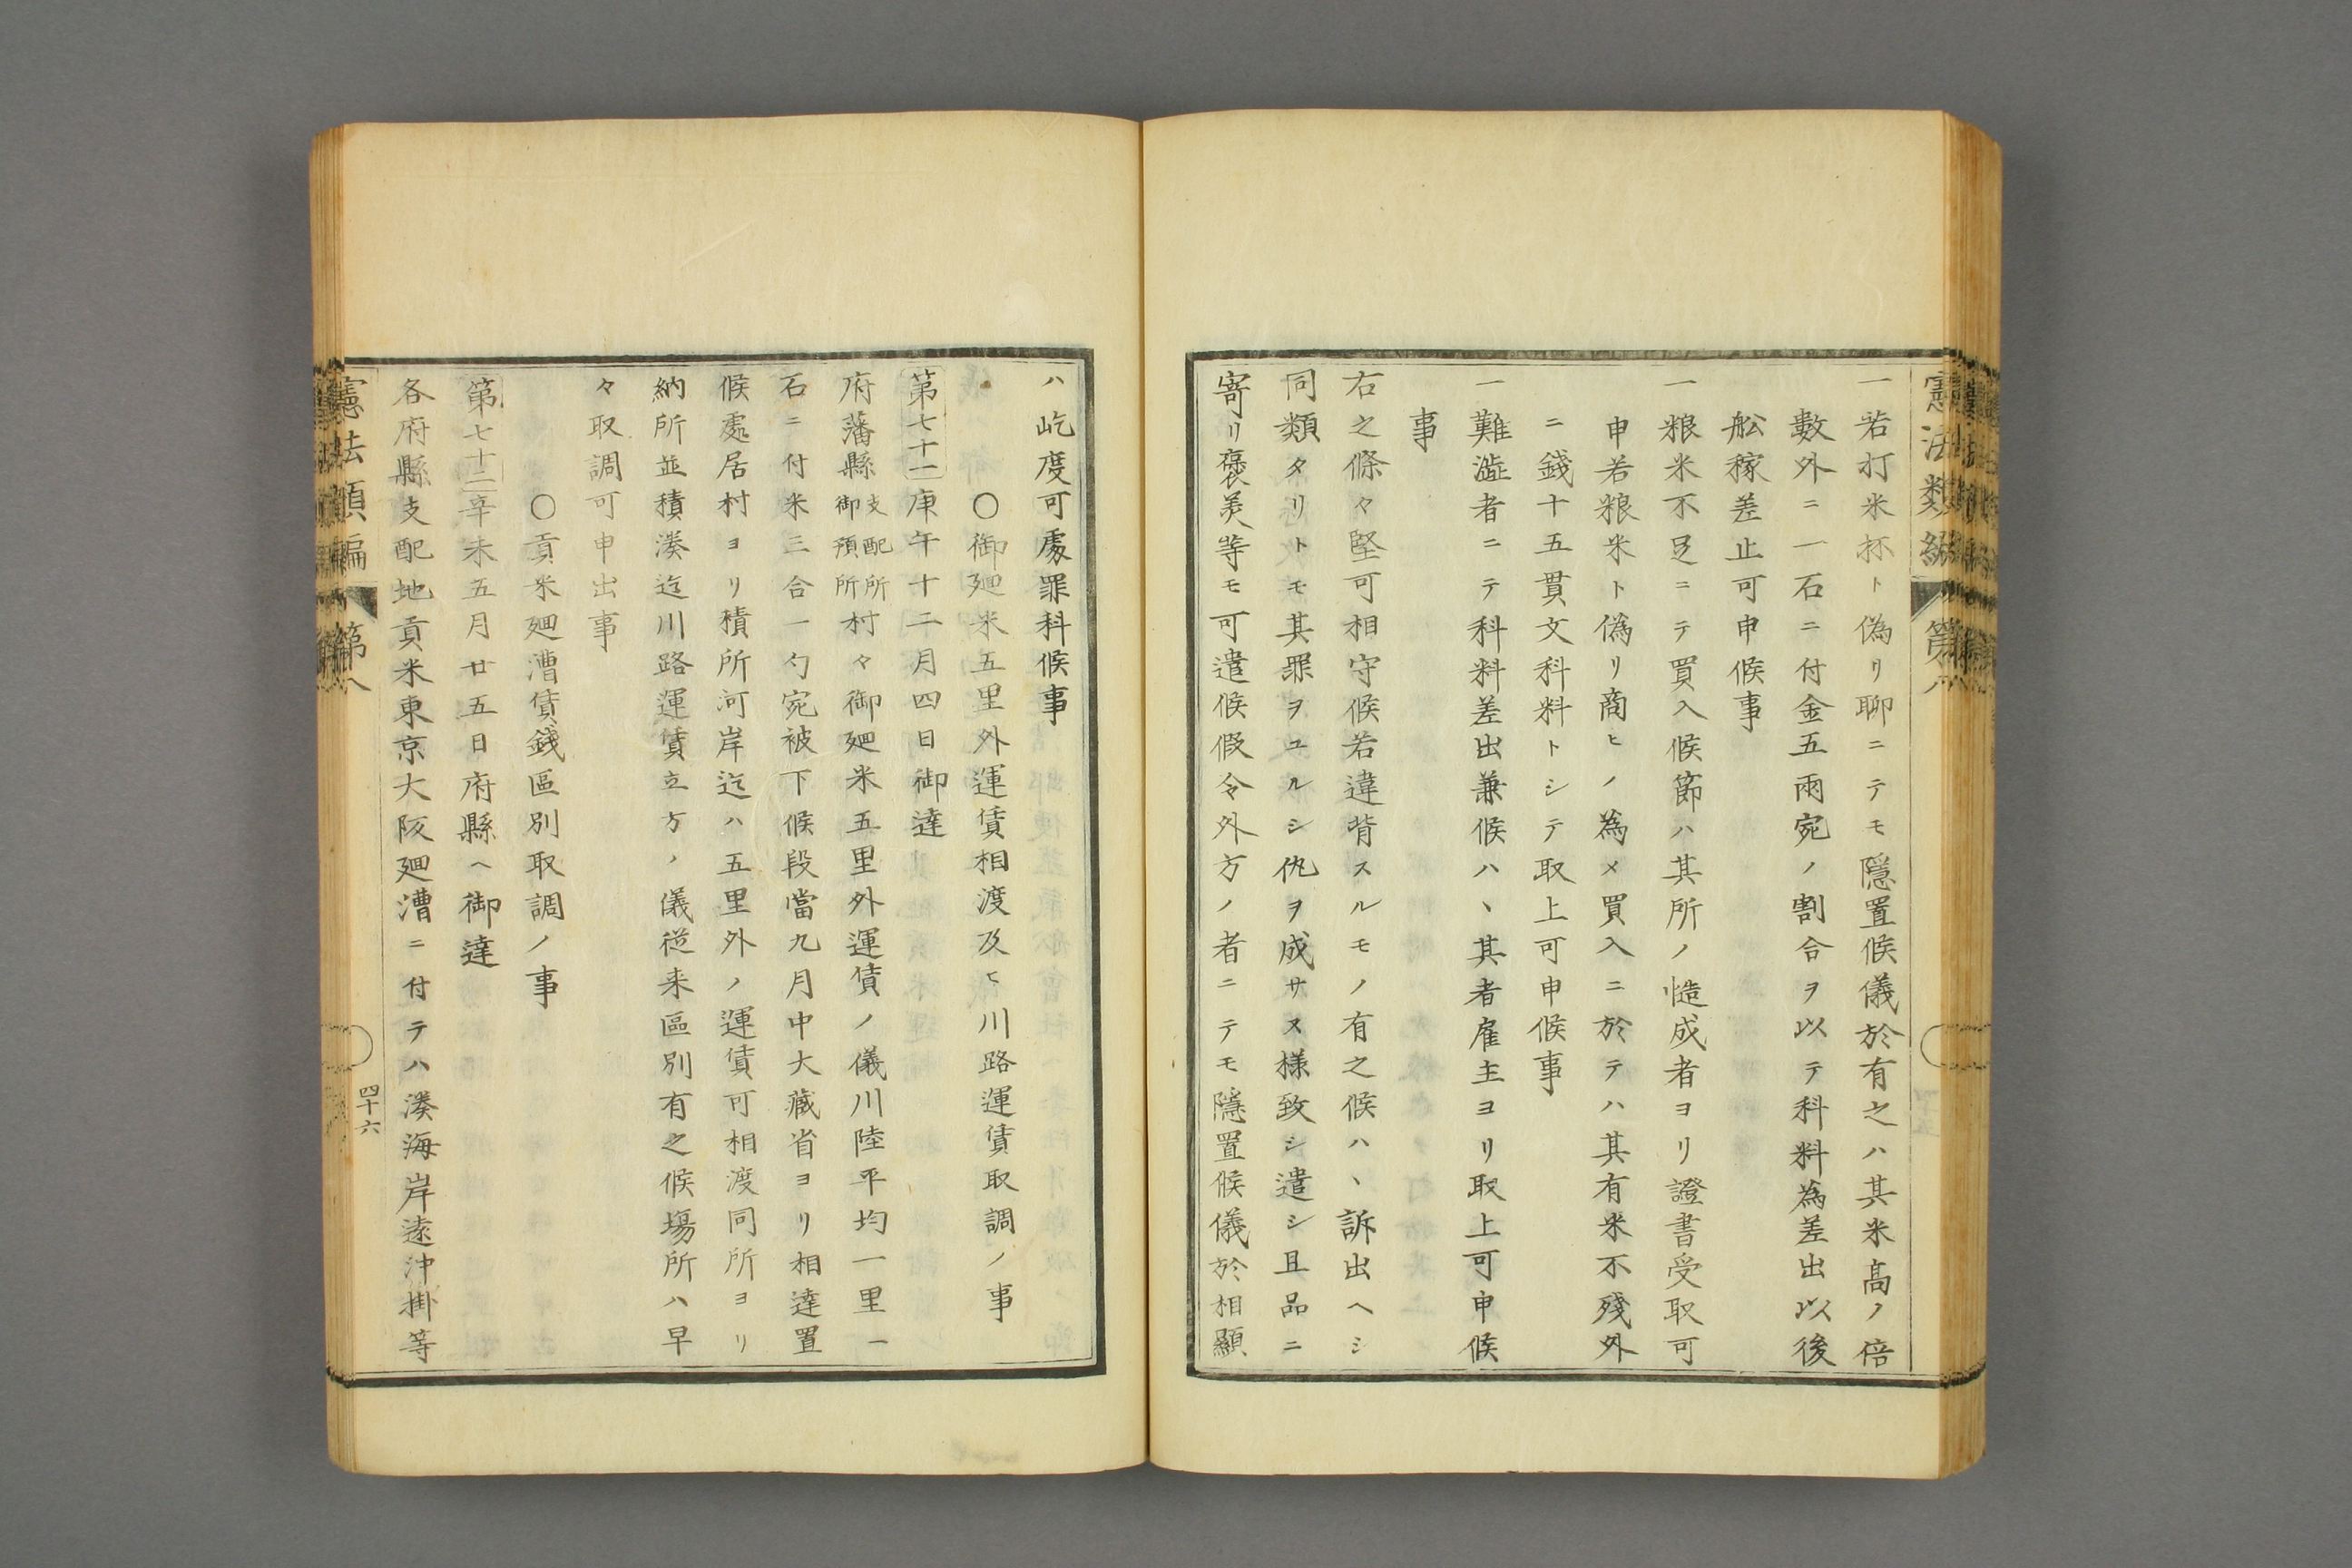 憲法類編 第八
一若打米抔ト偽リ聊ニテモ隱置候儀於有之ハ其米高ノ倍
數外ニ一石ニ付金五兩宛ノ割合ヲ以テ科料為差出以後
舩稼差止可申候事
一粮米不足ニテ買入候節ハ其所ノ慥成者ヨリ證書受取可
申若粮米ト偽リ商ヒノ為メ買入ニ於テハ其有米不殘外
ニ錢十五貫文科料トシテ取上可申候事
一難澁者ニテ科料差出兼候ハヽ其者雇主ヨリ取上可申候
事
右之條々堅可相守候若違背スルモノ有之候ハヽ訴出ヘシ
同類タリトモ其罪ヲユルシ仇ヲ成サス樣致シ遣シ且品ニ
寄リ褒美等モ可遣候假令外方ノ者ニテモ隱置候儀於相顯
ハ屹度可處罪科候事
○御廻米五里外運賃相渡及ヒ川路運賃取調ノ事
第七十一庚午十二月四日御達
府藩縣支配所御預所村々御廻米五里外運賃ノ儀川陸平均一里一
石ニ付米三合一勺宛被下候段當九月中大藏省ヨリ相達置
候處居村ヨリ積所河岸迄ハ五里外ノ運賃可相渡同所ヨリ
納所並積湊迄川路運賃立方ノ儀從来區別有之候塲所ハ早
々取調可申出事
○貢米廻漕賃錢區別取調ノ事
第七十二辛未五月廿五日府縣ヘ御達
各府縣支配地貢米東京大阪廻漕ニ付テハ湊海岸遠沖掛等
憲法類編 第八
四十六